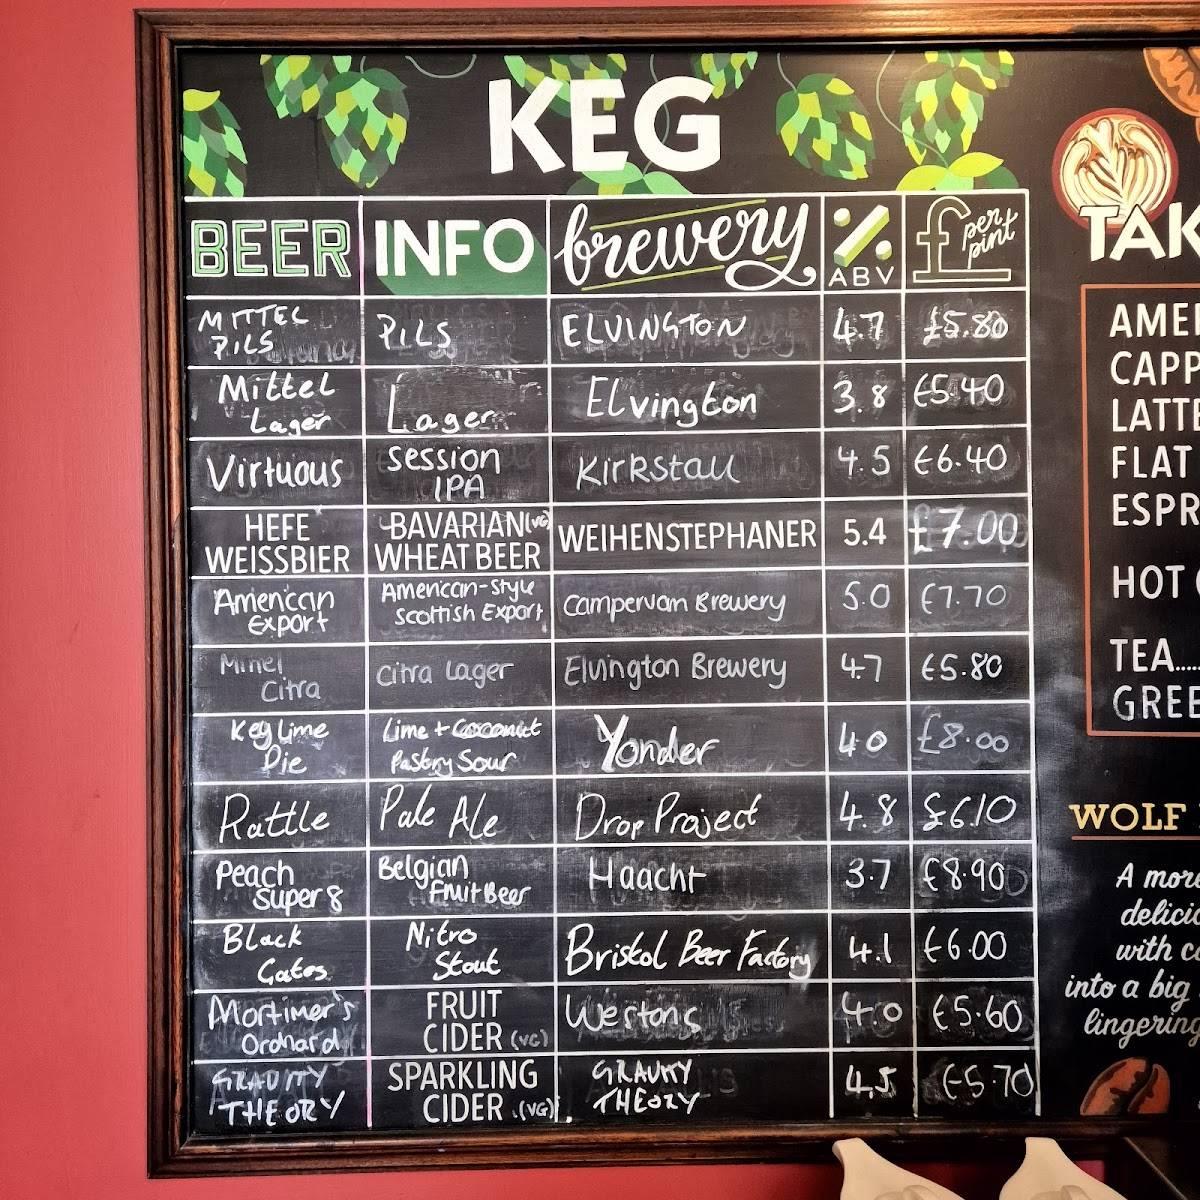 KEG
BEER INFO brewery % ABV £ per pint
MITTEL PILS PILS ELVINGTON 4.7 £5.80
Mittel Lager Lager Elvington 3.8 £5.40
Virtuous session IPA Kirkstall 4.5 £6.40
HEFE WEISSBIER BAVARIAN (VG) WHEAT BEER WEIHENSTEPHANER 5.4 £7.00
American Export American-Style Scottish Export Campervan Brewery 5.0 £7.70
Citra Citra Lager Elvington Brewery 4.7 £5.80
Key Lime Pie Lime + Coconut Pastry Sour Yonder 4.0 £8.00
Rattle Pale Ale Drop Project 4.8 £6.10
Peach Super 8 Belgian Fruit Beer Haacht 3.7 £8.90
Black Gates Nitro Stout Bristol Beer Factory 4.1 £6.00
Mortimer's Orchard FRUIT CIDER (VG) Westons 4.0 £5.60
GRAVITY THEORY SPARKLING CIDER (VG) GRAVITY THEORY 4.5 £5.70
TAK
AMEI
CAPP
LATTE
FLAT
ESPR
HOT
TEA.....
GREE
WOLF
A more
delici
with c
into a big
lingering